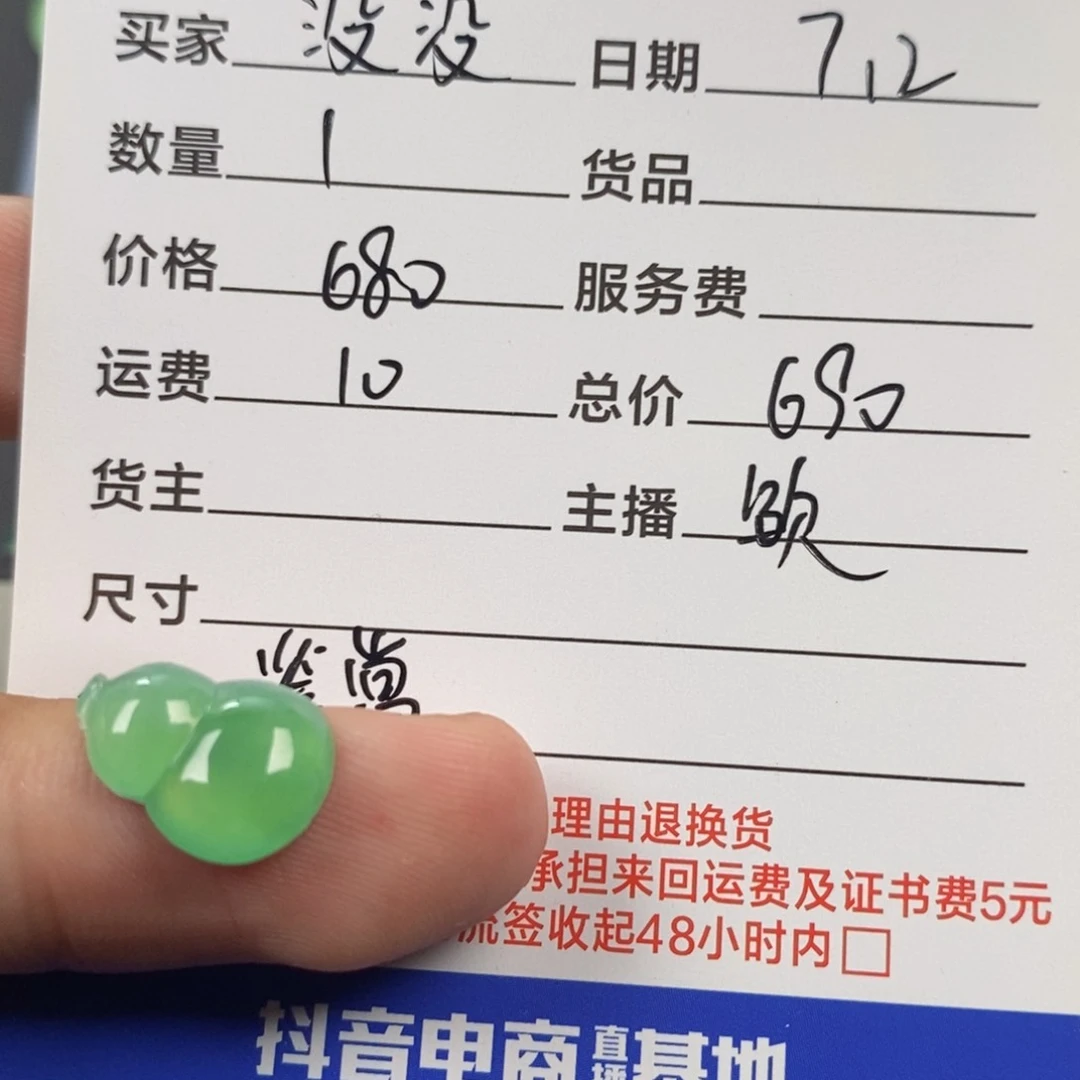 买家 没没 日期 7.12
数量 1 货品
价格 680 服务费
运费 10 总价 690
货主 主播 欧
尺寸
理由退换货
承担来回运费及证书费5元
流签收起48小时内
抖音电商直播基地